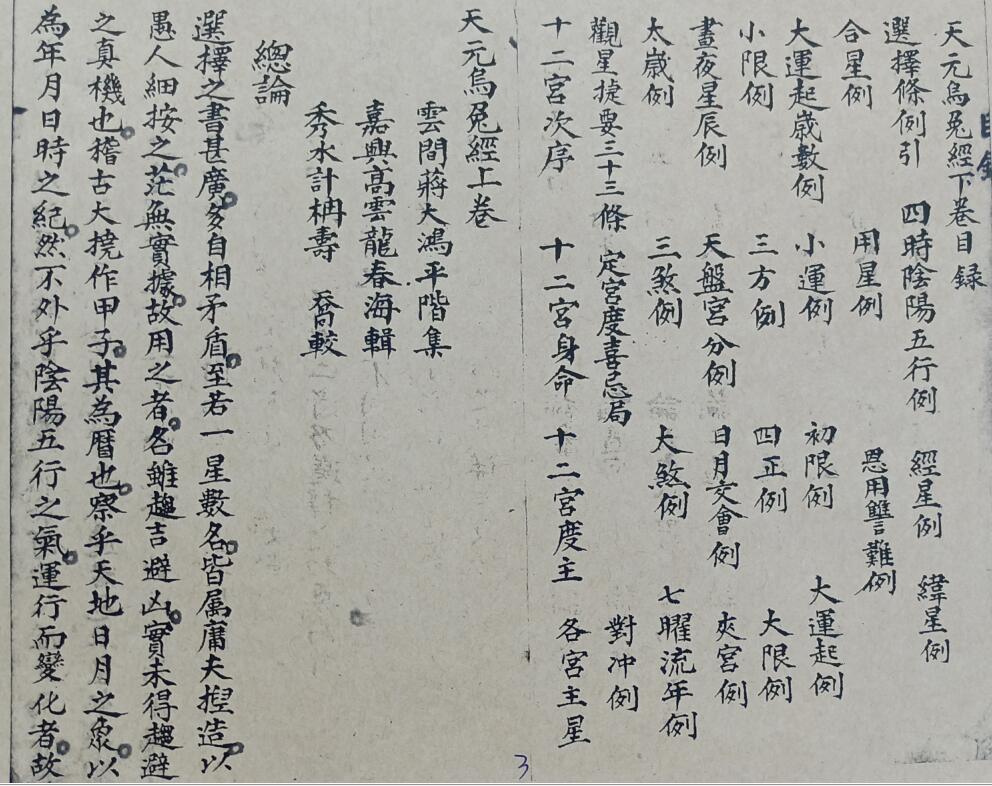 目錄
天元烏兔經下卷目録
選擇條例引 四時陰陽五行例 經星例 緯星例
合星例 用星例 恩用讐難例
大運起歳數例 小運例 初限例 大運起例
小限例 三方例 四正例 大限例
晝夜星辰例 天盤宮分例 日月交會例 夾宮例
太歳例 三煞例 大煞例 七曜流年例
觀星捷要三十三條 定宮度喜忌局 對冲例
十二宮次序 十二宮身命 十二宮度主 各宮主星
天元烏兔經上卷
雲間蔣大鴻平階集
嘉興高雲龍春海輯
秀水計枬壽喬較
總論
選擇之書甚廣多自相矛盾至若一星數名皆属庸夫揑造以
愚人細按之茫無實據故用之者名雖趨吉避凶實未得趨避
之真機也稽古大撓作甲子其為暦也察乎天地日月之象以
為年月日時之紀然不外乎陰陽五行之氣運行而變化者故
3